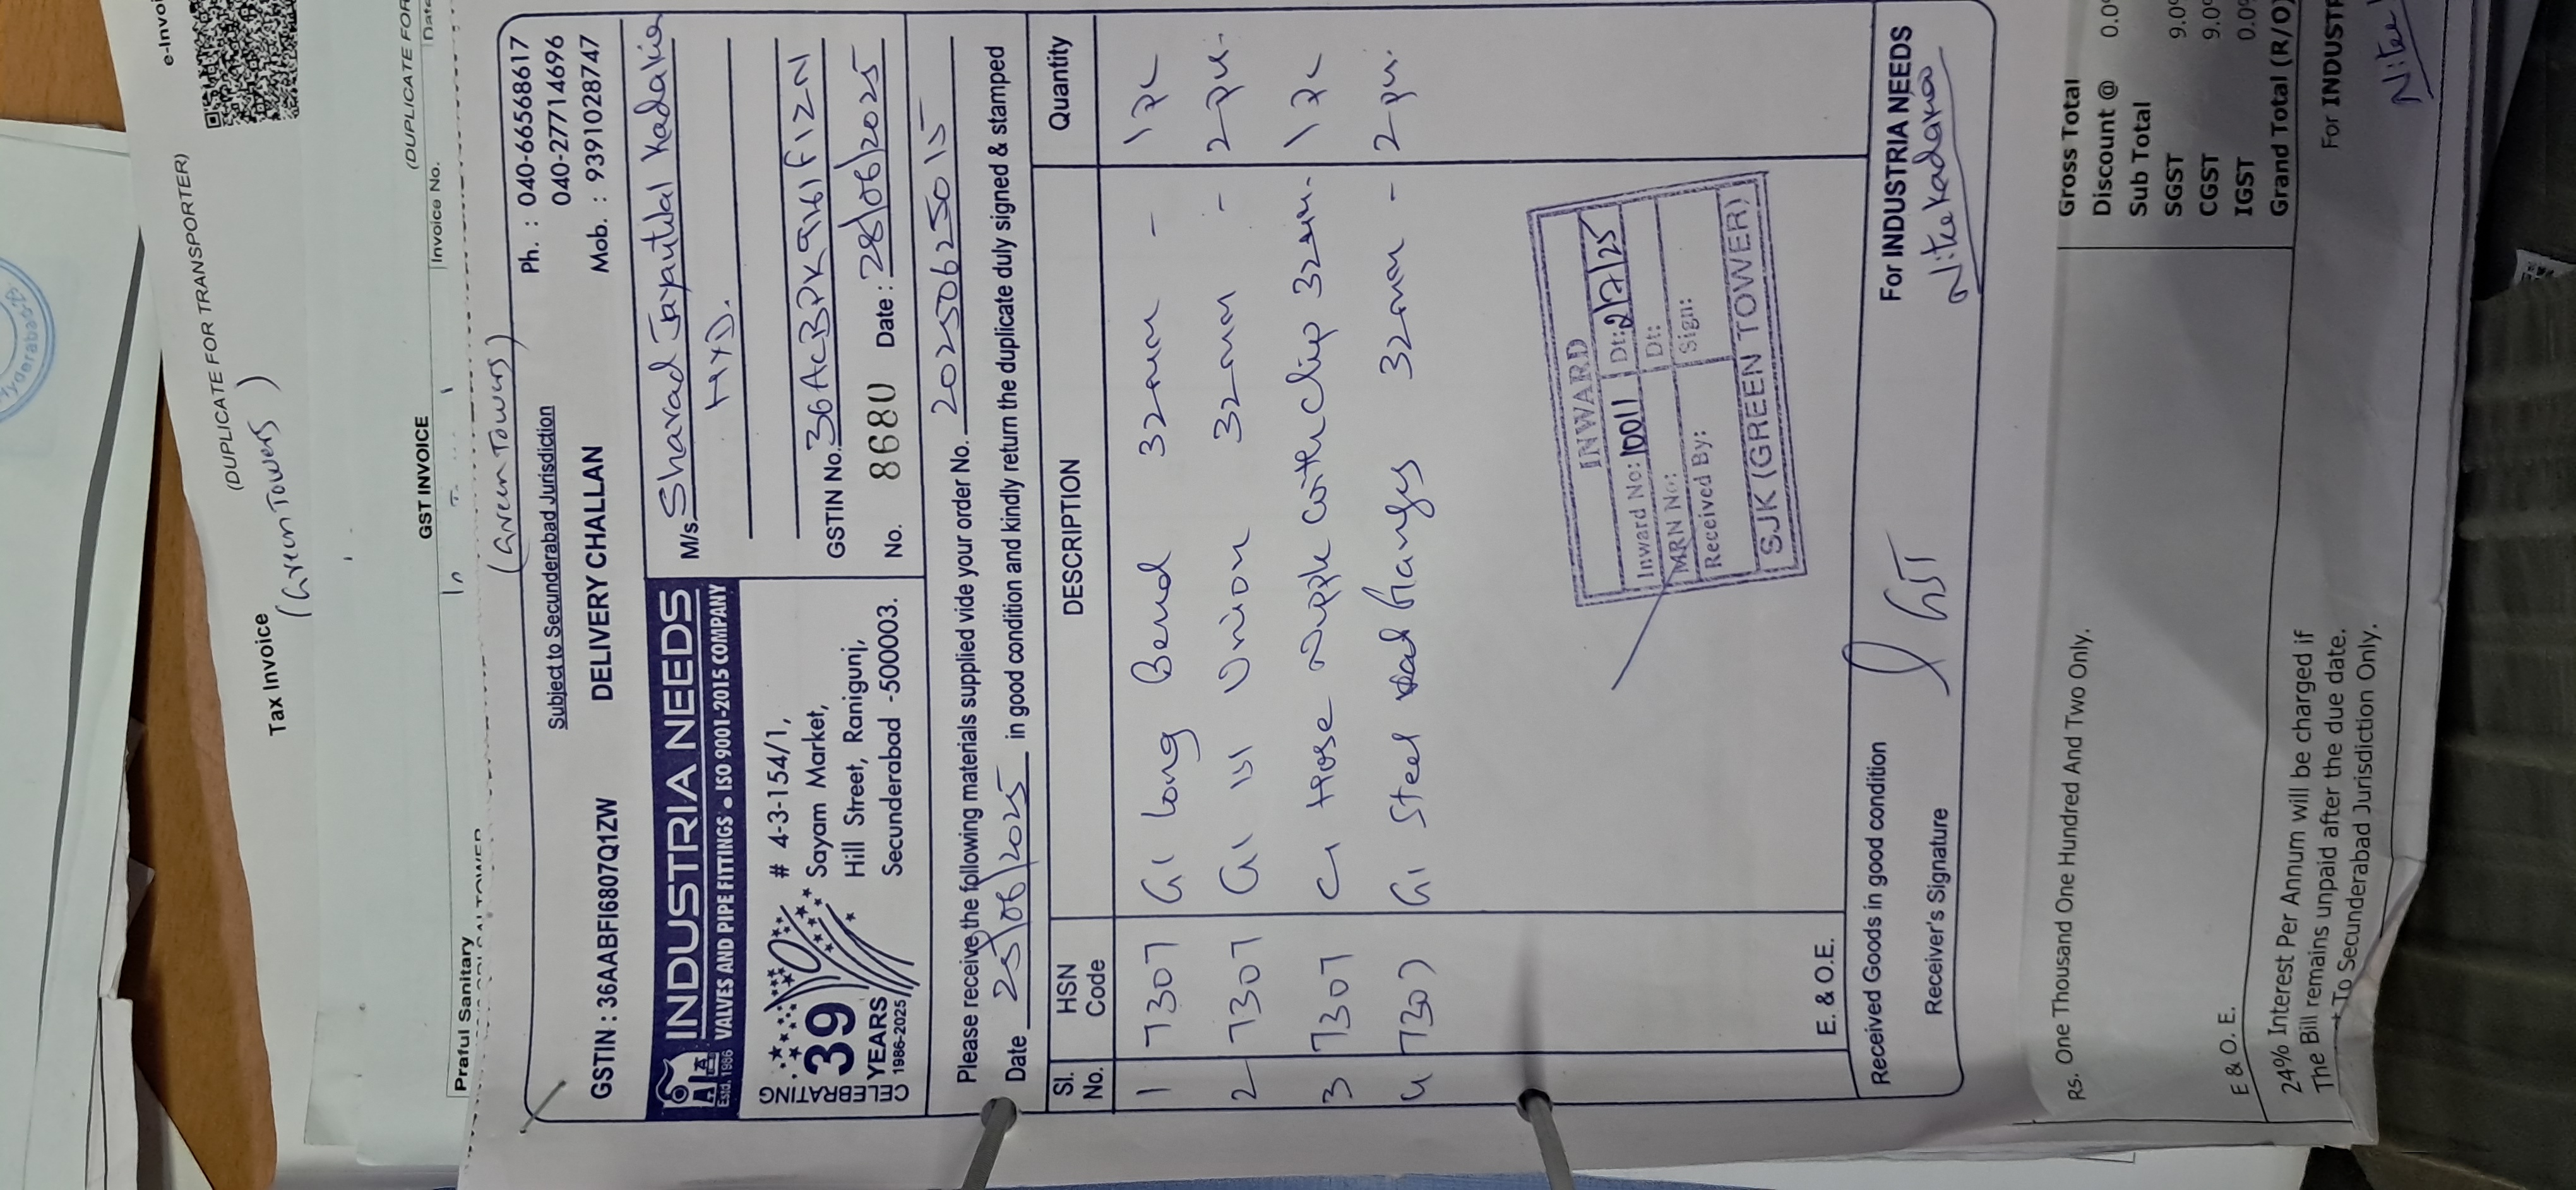 e-Invoi
(DUPLICATE FOR TRANSPORTER)
Tax Invoice
(Green Towers)
(DUPLICATE FOR
GST INVOICE
Invoice No.
Date
Praful Sanitary
(Green Towers)
Subject to Secunderabad Jurisdiction
Ph. : 040-66568617
040-27714696
GSTIN : 36AABFI6807Q1ZW
DELIVERY CHALLAN
Mob. : 9391028747
INDUSTRIA NEEDS
Estd. 1986
VALVES AND PIPE FITTINGS • ISO 9001-2015 COMPANY
CELEBRATING
39
YEARS
1986-2025
# 4-3-154/1,
Sayam Market,
Hill Street, Ranigunj,
Secunderabad -500003.
M/s. Sharad Jayantilal Kadakia
HYD.
GSTIN No. 36ACBPK9161F1ZN
No. 8680 Date : 28/06/2025
Please receive the following materials supplied vide your order No. 20250625015
Date 25/06/2025 in good condition and kindly return the duplicate duly signed & stamped
Sl. No. HSN Code DESCRIPTION Quantity
1 7307 GI Long Bend 32mm - 1 pc
2 7307 GI ISI Union 32mm - 2 pcs.
3 7307 GI Hose Nipple with Clip 32mm. 1 pc
4 7307 GI Steel Flanges 32mm - 2 pcs.
INWARD
Inward No: 10011 Dt: 2/7/25
MRN No: Dt:
Received By: Sign:
SJK (GREEN TOWER)
E. & O.E.
Received Goods in good condition
For INDUSTRIA NEEDS
Receiver's Signature
Gross Total
Discount @ 0.0
Sub Total
SGST 9.0
CGST 9.0
IGST 0.0
Grand Total (R/O)
Rs. One Thousand One Hundred And Two Only.
E & O. E.
24% Interest Per Annum will be charged if
The Bill remains unpaid after the due date.
To Secunderabad Jurisdiction Only.
For INDUSTR